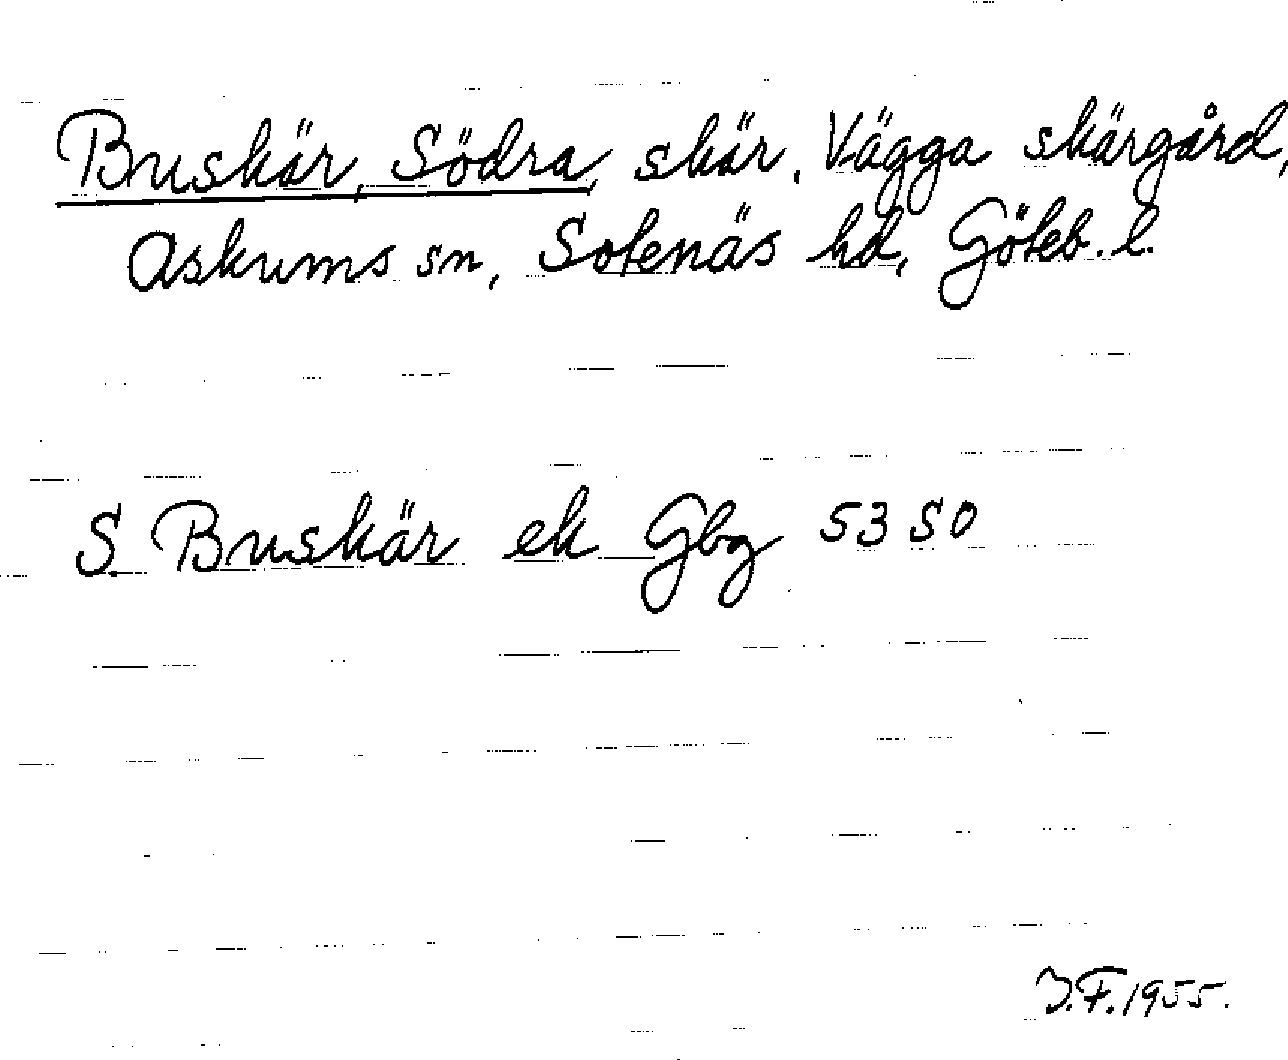 Buskär, Södra, skär, Vägga skärgård,
Askums sn, Sotenäs hd, Göteb. l.
S Buskär ek Gbg 53 SO
J.F. 1955.